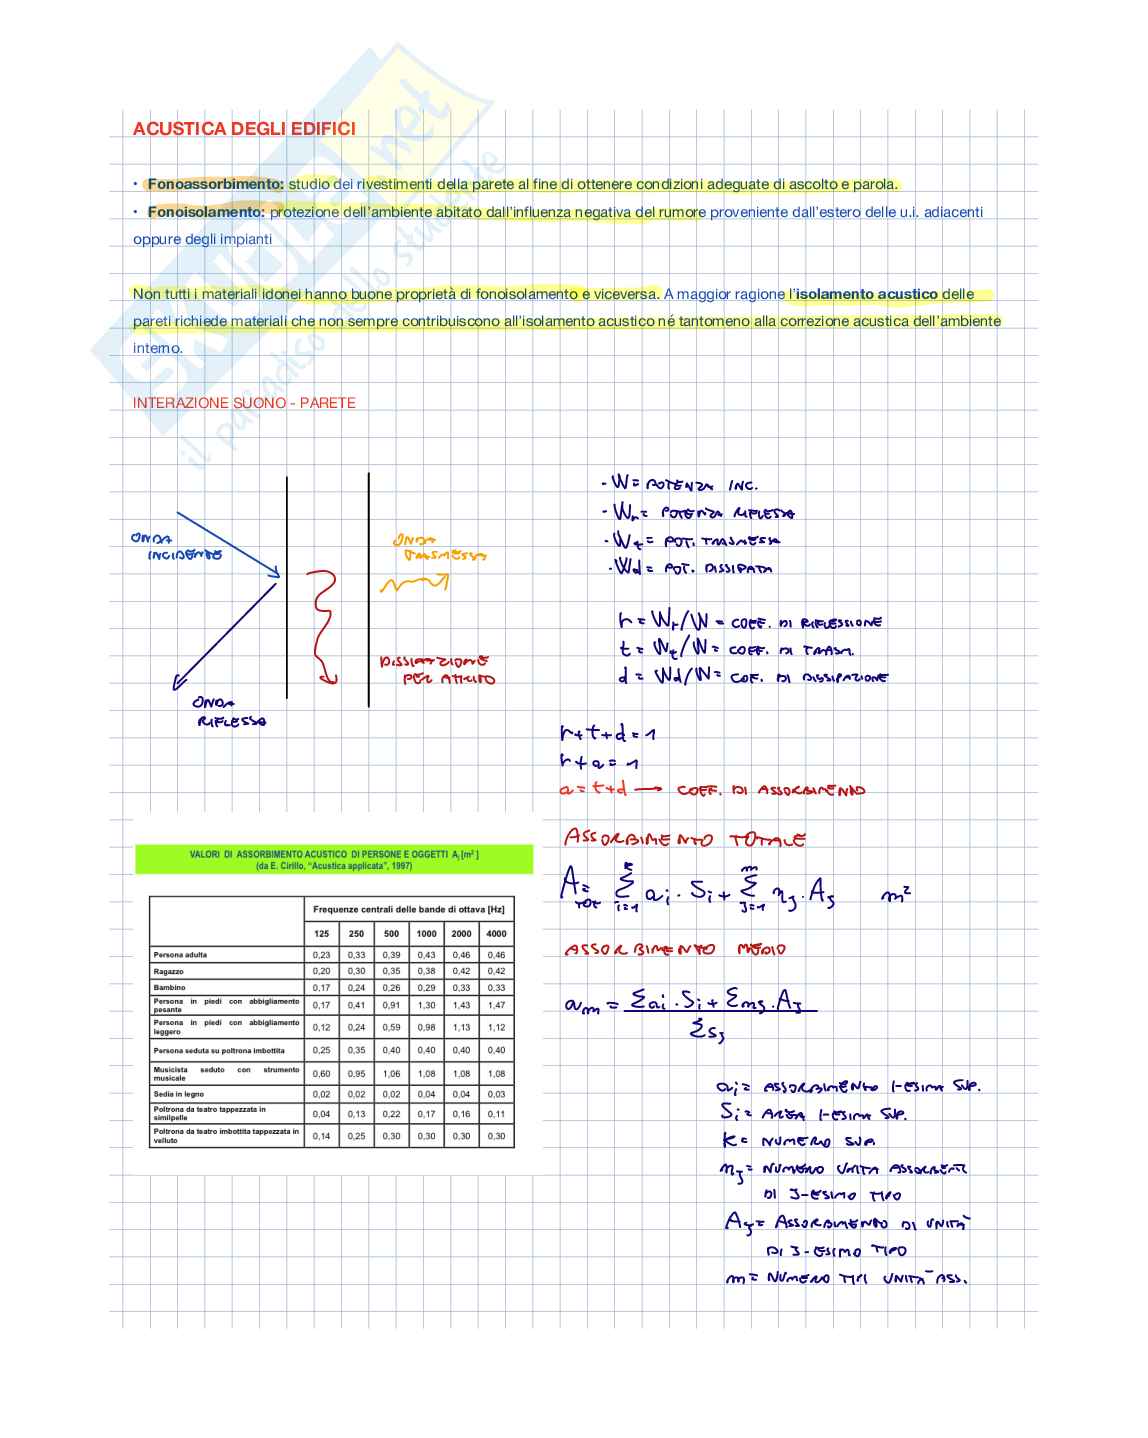 ACUSTICA DEGLI EDIFICI
• Fonoassorbimento: studio dei rivestimenti della parete al fine di ottenere condizioni adeguate di ascolto e parola.
• Fonoisolamento: protezione dell'ambiente abitato dall'influenza negativa del rumore proveniente dall'estero delle u.i. adiacenti
oppure degli impianti
Non tutti i materiali idonei hanno buone proprietà di fonoisolamento e viceversa. A maggior ragione l'isolamento acustico delle
pareti richiede materiali che non sempre contribuiscono all'isolamento acustico né tantomeno alla correzione acustica dell'ambiente
interno.
SKUOLA.net
il paradiso dello studente
INTERAZIONE SUONO - PARETE
ONDA
INCIDENTE
ONDA
RIFLESSA
ONDA
TRASMESSA
DISSIPAZIONE
PER ATTRITO
- W = POTENZA INC.
- Wr = POTENZA RIFLESSA
- Wt = POT. TRASMESSA
- Wd = POT. DISSIPATA
r = Wr/W = COEF. DI RIFLESSIONE
t = Wt/W = COEF. DI TRASM.
d = Wd/W = COF. DI DISSIPAZIONE
r+t+d = 1
r+a = 1
a = t+d → COEFF. DI ASSORBIMENTO
VALORI DI ASSORBIMENTO ACUSTICO DI PERSONE E OGGETTI Aj [m² ]
(da E. Cirillo, "Acustica applicata", 1997)
Frequenze centrali delle bande di ottava [Hz]
125 250 500 1000 2000 4000
Persona adulta 0,23 0,33 0,39 0,43 0,46 0,46
Ragazzo 0,20 0,30 0,35 0,38 0,42 0,42
Bambino 0,17 0,24 0,26 0,29 0,33 0,33
Persona in piedi con abbigliamento
pesante 0,17 0,41 0,91 1,30 1,43 1,47
Persona in piedi con abbigliamento
leggero 0,12 0,24 0,59 0,98 1,13 1,12
Persona seduta su poltrona imbottita 0,25 0,35 0,40 0,40 0,40 0,40
Musicista seduto con strumento
musicale 0,60 0,95 1,06 1,08 1,08 1,08
Sedia in legno 0,02 0,02 0,02 0,04 0,04 0,03
Poltrona da teatro tappezzata in
similpelle 0,04 0,13 0,22 0,17 0,16 0,11
Poltrona da teatro imbottita tappezzata in
velluto 0,14 0,25 0,30 0,30 0,30 0,30
ASSORBIMENTO TOTALE
A_TOT = Σ_{i=1}^{k} ai · Si + Σ_{J=1}^{m} nJ · AJ m²
ASSORBIMENTO MEDIO
am = Σai · Si + Σmj · AJ / ΣSJ
ai = ASSORBIMENTO I-ESIMA SUP.
Si = AREA I-ESIMA SUP.
K = NUMERO SUP.
nJ = NUMERO UNITA ASSORBENTI
DI J-ESIMO TIPO
AJ = ASSORBIMENTO DI UNITA'
DI J-ESIMO TIPO
m = NUMERO TIPI UNITA' ASS.